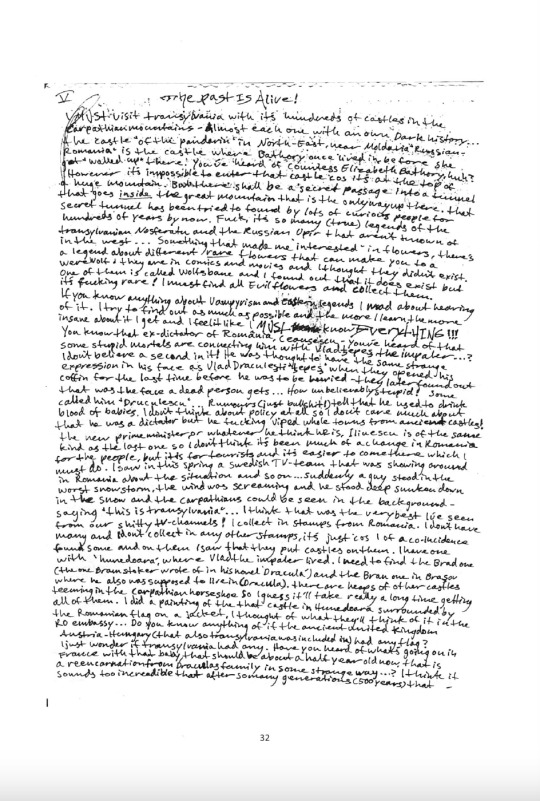 V The Past Is Alive!
I MUST visit transylvania with its hundreds of castles in the
Carpathian mountains - Almost each one with an own Dark history...
the castle "of the pandarin" in North-East, near Moldavia "Russian-
Romania" is the castle where Bathory once lived in before she
got "walled up" there! You've heard of Countess Elizabeth Bathory, huh?
However it's impossible to enter that castle 'cos it's at the top of
a huge mountain. But there shall be a secret passage into a tunnel
that goes inside the great mountain that is the only way up there. that
secret tunnel has been tried to found by lots of curious people for
hundreds of years by now. Fuck, it's so many (true) legends of the
transylvanian Nosferatu and the Russian Upir that aren't known of
in the west... Something that made me interested in flowers, there's
a legend about different rare flowers that can make you to a
werewolf & they are in comics and movies and I thought they didn't exist.
One of them is called Wolfsbane and I found out that it does exist but
it's fucking rare! I must find all Evil flowers and collect them.
If you know anything about Vampyrism and legends I mad about hearing
of it. I try to find out as much as possible and the more I learn the more
insane about it I get and I feel it like I MUST know EVERYTHING!!!
You know that ex-dictator of Romania, Ceausescu - you've heard of that
some stupid mortals are connecting him with Vlad tepes the impaler...?
I don't believe a second in it! He was thought to have the same strange
expression in his face as Vlad Draculesti "tepes" when they opened his
coffin for the last time before he was to be burried - they later found out
that was the face a dead person gets... How unbelieverbly stupid! Some
called him "Draculescu"... Rumours (just bullshit) tell that he used to drink
blood of babies. I don't think about policy at all so I don't care much about
that he was a dictator but he fucking viped whole towns from ancient castles!
the new prime minister or whatever he think he is, Iliescu is of the same
kind as the last one so I don't think it's been much of a change in Romania
for the people, but it is for tourists and it's easier to come there which I
must do. I saw in this spring a Swedish TV-team that was showing around
in Romania about the situation and so on... Suddenly a guy stood in the
worst snowstorm, the wind was screaming and he stood deep sunken down
in the snow and the carpathians could be seen in the background -
saying "this is transylvania"... I think that was the very best I've seen
from our shitty tv-channels! I collect in stamps from Romania. I don't have
many and I don't collect in any other stamps, it's just 'cos 1 of a co-incidence
found some and on them I saw that they put castles on them. I have one
with "hunedoara", where Vlad the impaler lived. I need to find the Brad one
(the one Bram stoker wrote of in his novel "Dracula") and the Bran one in Brasov
where he also was supposed to live in (Dracula). there are heaps of other castles
teeming in the carpathian horseshoe so I guess it'll take really a long time getting
all of them. I did a painting of the that castle in Hunedoara surrounded by
the Romanian flag on a jacket, I thought of what they'll think of it in the
RO embassy... Do you know anything of if the ancient united kingdom
Austria-Hungary (that also transylvania was included in) had any flag?
I just wonder if transylvania had any. Have you heard of what's going on in
France with that baby, that should be about a half year old now, that is
a reencarnation from Draculas family in some strange way...? I think it
sounds too increadible that after so many generations (500 years) that -
32